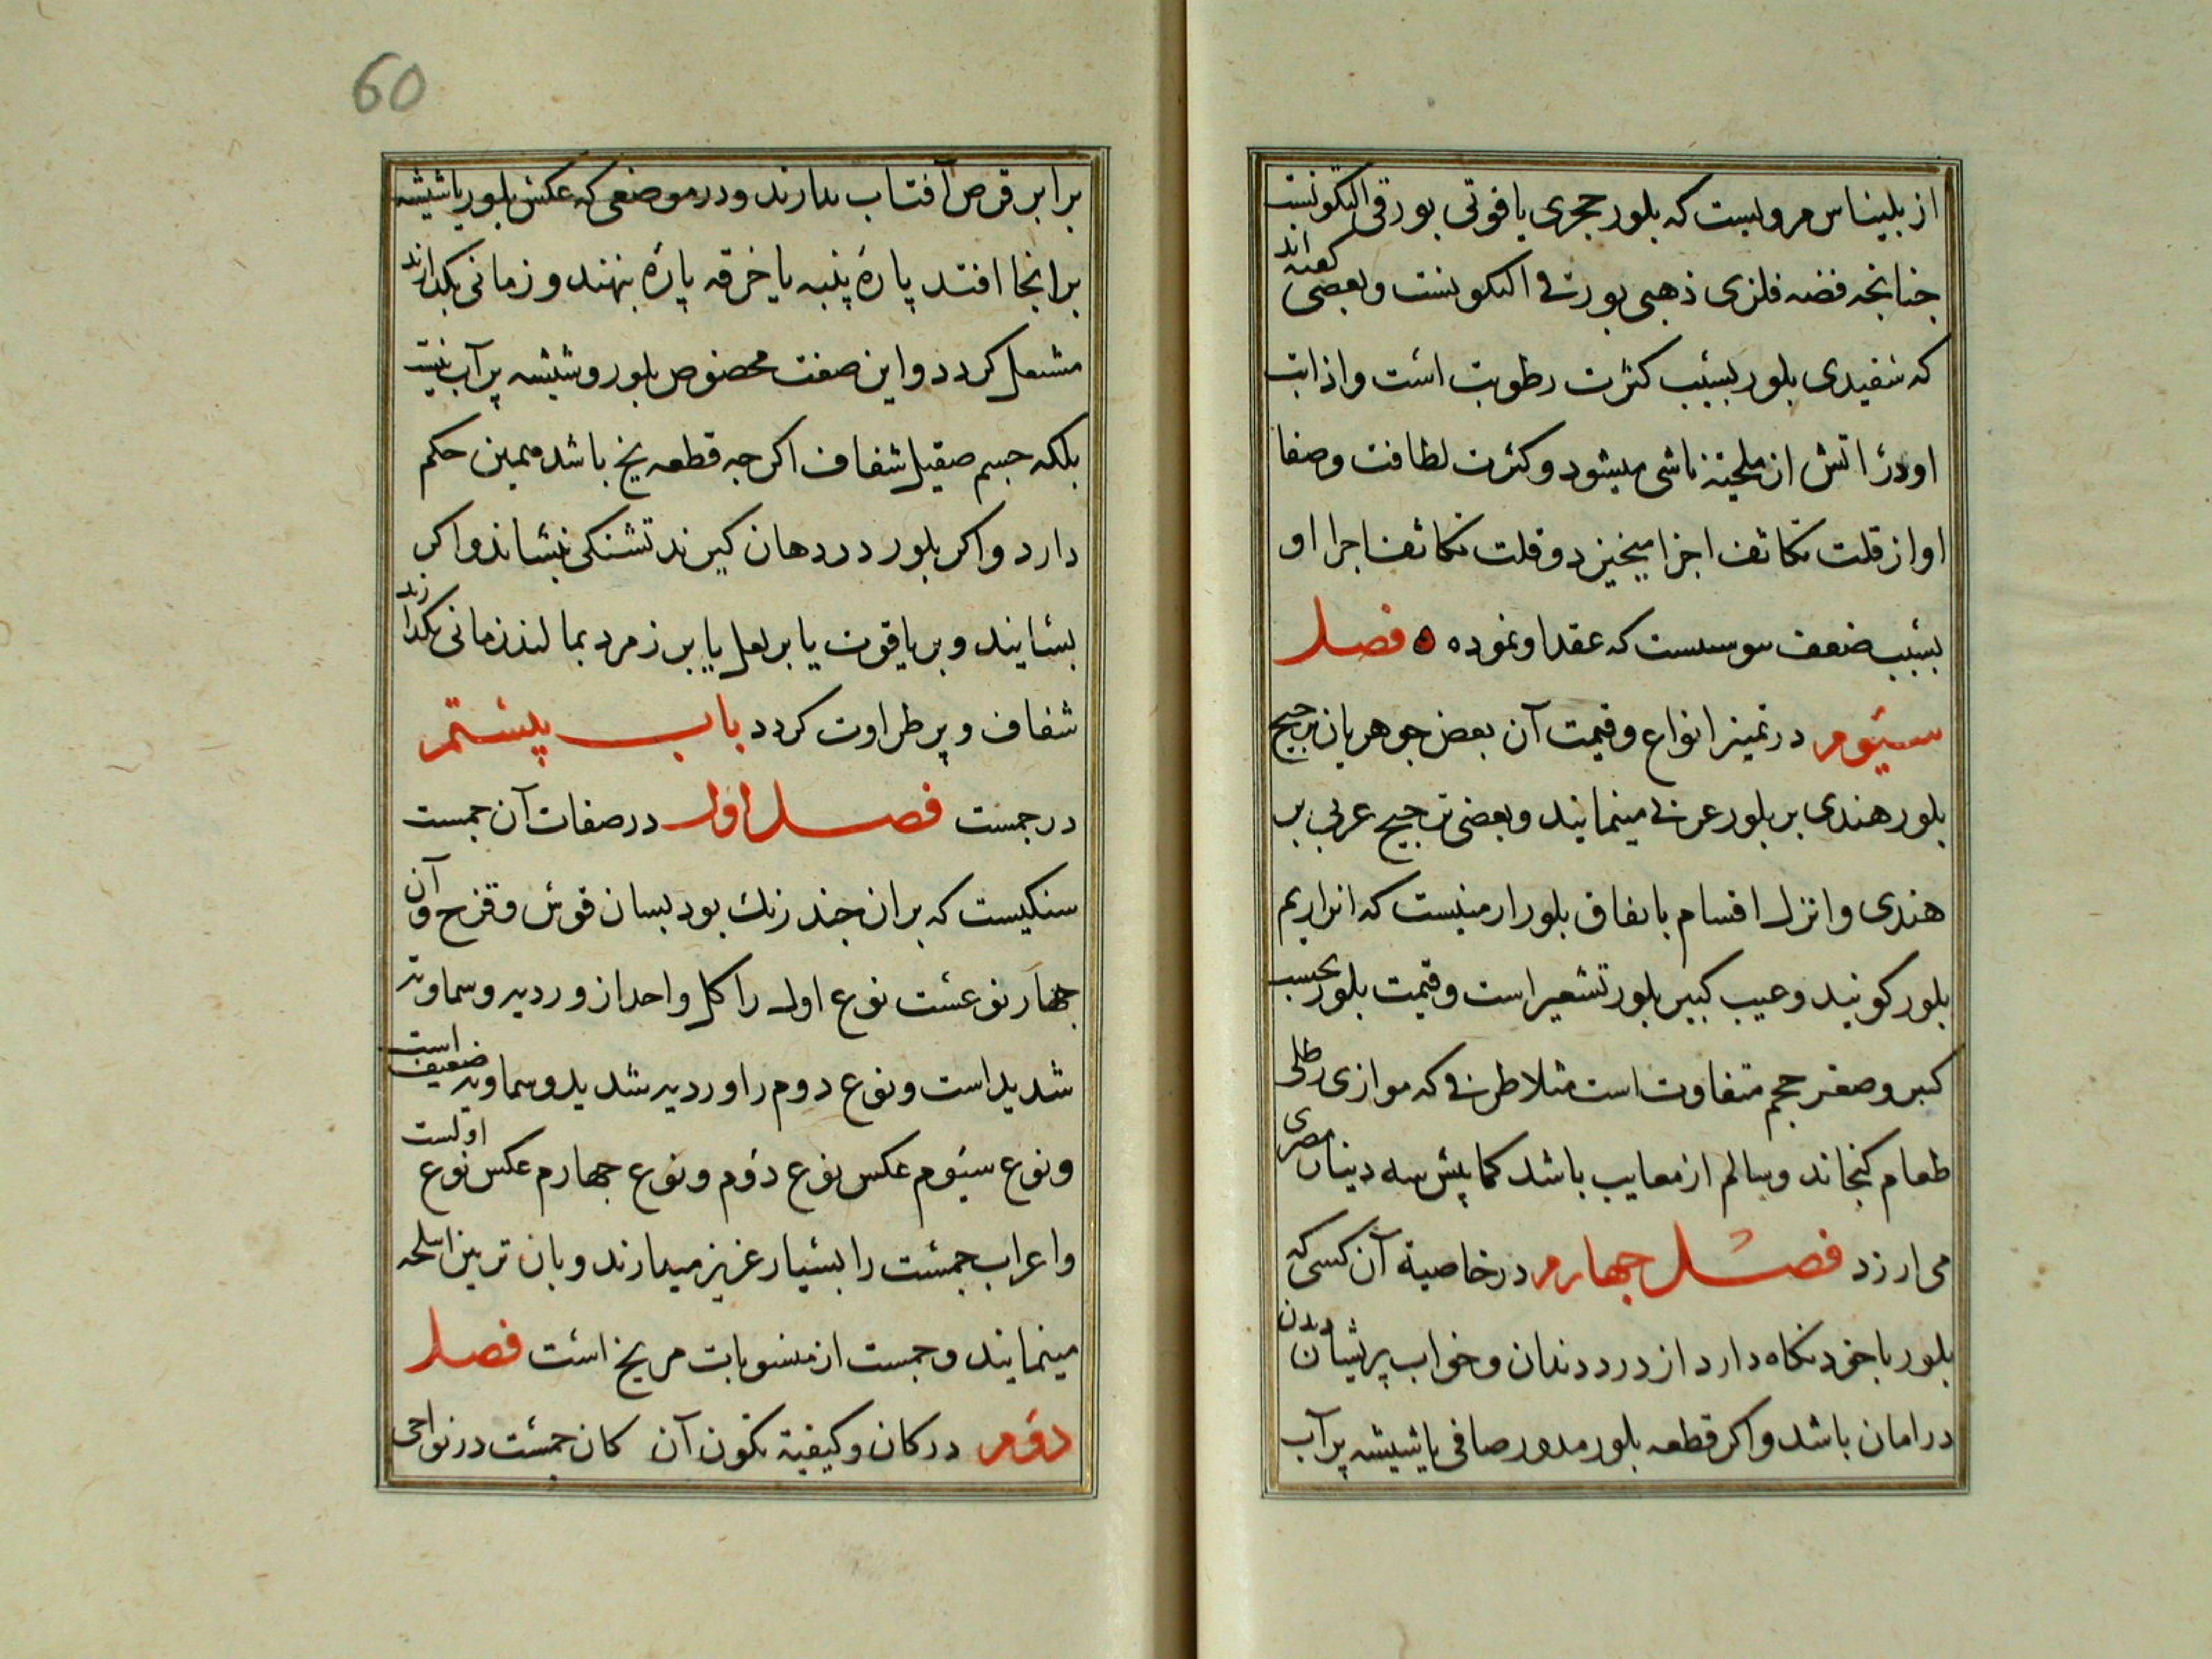 از بلیناس مرویست که بلور حجری یاقوتی بورقی التکونست
جنانجه فضه فلزی ذهبی بورقی التکونست وبعضی کفته اند
که سفیدی بلور بسبب کثرت رطوبت است واذابت
او در اتش از ملحیته ناشی میشود وکثرت لطافت وصفا
او از قلت تکاثف اجزا میخیزد وقلت تکاثف اجزا او
بسبب ضعف یبوستست که عقد او نموده ه فصل
سیوم در تمیز انواع وقیمت آن بعض جوهریان ترجیح
بلور هندی بر بلور عربی مینمایند وبعضی ترجیح عربی بر
هندی وانزل اقسام باتفاق بلور ارمنیست که انرا ریم
بلور کویند وعیب کبیر بلور تشعیر است وقیمت بلور بحسب
کبر وصغر حجم متفاوت است مثلا ظرفی که موازی رطلی
طعام کنجاند وسالم از معایب باشد کمابیش سه دینار مصری
می ارزد فصل جهارم در خاصیة آن کسی که
بلور باخود نکاه دارد از درد دندان وخواب پریشان دیدن
در امان باشد واکر قطعه بلور مدور صافی یا شیشه پر آب
60
برابر قرص آفتاب بدارند ودر موضعی که عکس بلور یا شیشه
بر انجا افتد پارهٔ پنبه یا خرقه پارهٔ بنهند وزمانی بکذارند
مشتعل کردد واین صفت مخصوص بلور وشیشه پر آب نیست
بلکه جسم صیقل شفاف اکرجه قطعه یخ باشد همین حکم
دارد واکر بلور در دهان کیرند تشنکی بنشاند واکر
بسایند وبر یاقوت یا بر لعل یا بر زمرد بمالند زمانی بکذارند
شفاف وپر طراوت کردد باب بیستم
در جمست فصل اول در صفات آن جمست
سنکیست که بران جند رنك بود بسان قوس وقزح وآن
جهار نوعست نوع اول را کل واحد از وردیه وسماویه
شدید است ونوع دوم را وردیه شدید وسماویه ضعیف است
ونوع سیوم عکس نوع دوم ونوع جهارم عکس نوع اولست
واعراب جمست را بسیار عزیز میدارند وبان تزیین اسلحه
مینمایند وجمست از منسوبات مریخ است فصل
دوم در کان وکیفیة تکون آن کان جمست در نواحی